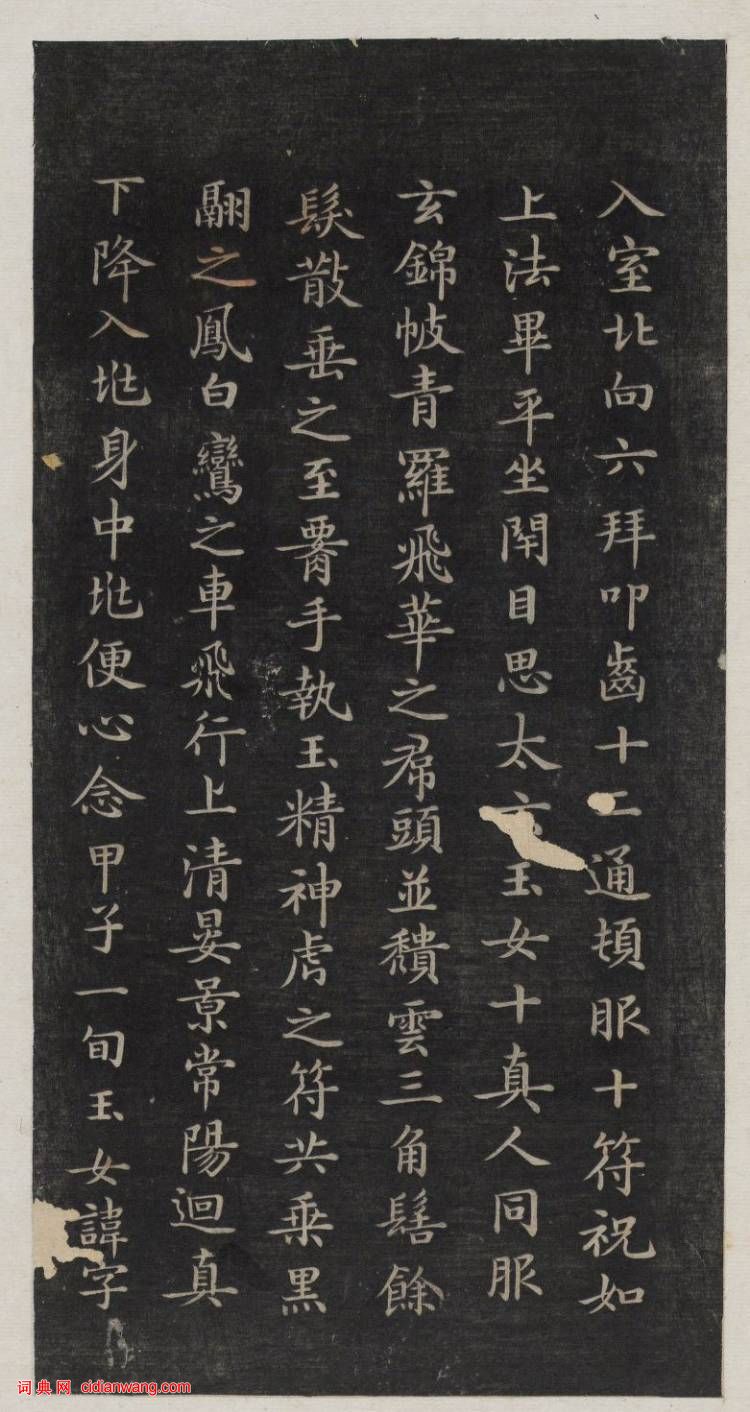 入室北向六拜叩齒十二通頓服十符祝如
上法畢平坐閇目思太玄玉女十真人同服
玄錦帔青羅飛華之帬頭並穨雲三角髻餘
髮散垂之至𦝫手執玉精神虎之符共乗黒
翮之鳳白鸞之車飛行上清晏景常陽迴真
下降入𡉏身中𡉏便心念甲子一旬玉女諱字
词典网 cidianwang.com